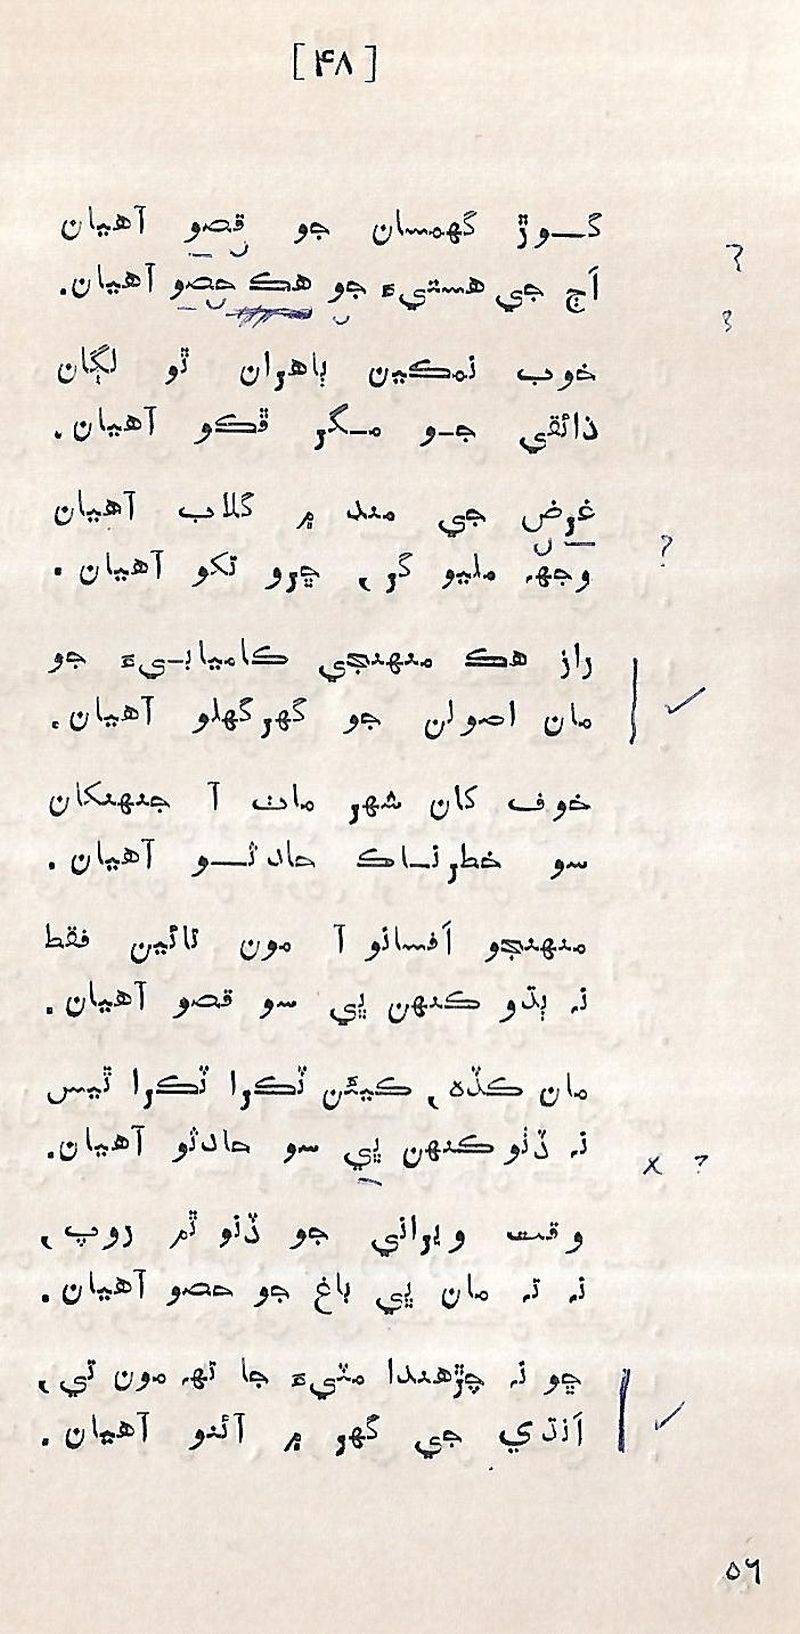 [ ۴۸ ]
گوڙ گھمسان جو قصو آهيان
?
اَڄ جي هستيءَ جو هڪ حصو آهيان.
?
خوب نمڪين ٻاهران ٿو لڳان
ذائقي جو مگر ڦڪو آهيان.
غرض جي منڊ ۾ گلاب آهيان
?
وجهہ مليو گر، ڇرو تکو آهيان.
راز هڪ منهنجي ڪاميابيءَ جو
مان اصولن جو گهرگهلو آهيان.
خوف کان شهر مات آ جنهنکان
سو خطرناڪ حادثو آهيان.
منهنجو اَفسانو آ مون تائين فقط
نہ ٻڌو ڪنهن ڀي سو قصو آهيان.
مان ڪڏه، ڪيئن ٽڪرا ٽڪرا ٿيس
نہ ڏٺو ڪنهن ڀي سو حادثو آهيان.
x ?
وقت ويراني جو ڏنو ٿم روپ،
نہ تہ مان ڀي باغ جو حصو آهيان.
ڇو نہ چڙهندا مٽيءَ جا تهہ مون تي،
اَنڌي جي گهر ۾ آئنو آهيان.
۵۶